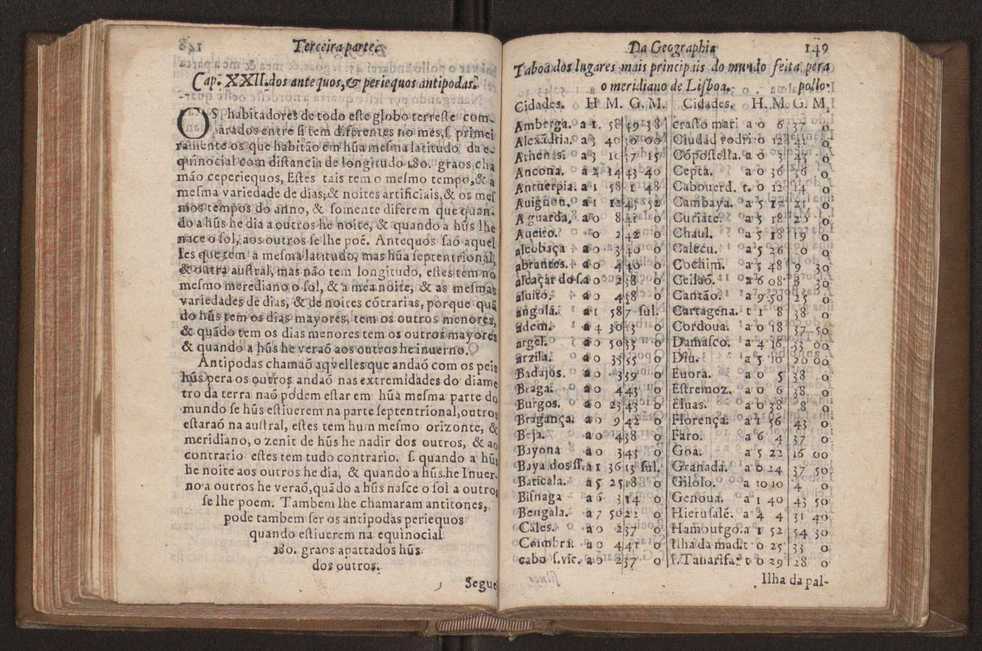 148 Terceira parte.
Cap. XXII. dos antequos, & periequos antipodas.
OS habitadores de todo este globo terreste com-
arados entre si tem diferentes no mes, s. primei
ramente os que habitão em hũa mesma latitudo da e-
quinocial com distancia de longitudo 180. graos cha
mão ceperiequos, Estes tais tem o mesmo tempo, & a
mesma variedade de dias, & noites artificiais, & os mes
mos tempos do anno, & somente diferem que quan-
do a hũs he dia a outros he noite, & quando a hũs lhe
nace o sol, aos outros se lhe poẽ. Antequos saõ aquel
les que tem a mesma latitudo, mas hũa septentrional,
& outra austral, mas não tem longitudo, estes tem no
mesmo merediano o sol, & a mea noite, & as mesmas
variedades de dias, & de noites cõtrarias, porque quã
do hũs tem os dias mayores, tem os outros menores,
& quãdo tem os dias menores tem os outros mayores
& quando a hũs he veraõ aos outros he inuerno.
Antipodas chamaõ aquelles que andaõ com os peis
hũs pera os outros andaõ nas extremidades do diame
tro da terra naõ podem estar em hũa mesma parte do
mundo se hũs estiuerem na parte septentrional, outros
estaraõ na austral, estes tem hum mesmo orizonte, &
meridiano, o zenit de hũs he nadir dos outros, & ao
contrario estes tem tudo contrario. s. quando a hũs
he noite aos outros he dia, & quando a hũs he Inuer
no a outros he veraõ, quãdo a hũs nasce o sol a outros
se lhe poem. Tambem lhe chamaram antitones,
pode tambem ser os antipodas periequos
quando estiuerem na equinocial
180. graos apattados hũs
dos outros.
Segue
Da Geographia 149
Taboa dos lugares mais principais do mundo feita pera
o meridiano de Lisboa. pollo
Cidades. H M. G. M. Cidades. H. M. G. M.
Amberga. a 1. 58 49 38 crasto mari a 0 6 37 0
Alexãdria. a 3 40 30 00 Ciudad rodri 0 12 41 0
Athenas. a 3 37 15 Cõpostella. a 0 3 43 0
Ancona. a 2 14 43 40 Cepta. a 0 36 0
Antuerpia. a 1 58 1 48 Cabouerd. t. 0 12 14 0
Auignon. a 1 12 45 52 Cambaya. a 5 12 21 0
A guarda, a 0 8 0 Curiate. a 5 18 0
Aueiro. 0 2 42 Chaul. a 5 18 19 0
alcobaça a 0 3 0 Calecu. a 5 26 0
abrantes. a 0 4 0 Cochim. a 5 48 9 30
alcaçar do sa 0 2 38 0 Ceilaõ. a 6 08 8 30
aluito. a 0 4 38 0 Cantão. a 9 50 25 0
angola. a 1 58 7 sul. Cartagena. t 1 8 38 0
adem. a 4 30 0 Cordoua. a 0 18 37 50
argel. a 0 50 0 Damasco. a 4 16 33 00
arzilla. a 0 35 35 0 Diu. a 5 10 20 00
Badajos. a 0 3 39 0 Euora. a 0 5 38 0
Braga. a 0 4 43 0 Estremoz. a 0 6 38 0
Burgos. a 0 23 43 0 Eluas. a 0 38 8 0
Bragança. a 0 9 42 0 Florença. a 1 56 43 0
Beja. a 0 4 38 0 Faro. a 6 4 37 0
Bayona a 0 3 43 0 Goa. a 5 22 16 00
Baya dos ss. a 1 36 15 sul, Granada. a 0 24 37 50
Baticala. a 5 25 18 0 Gilolo. a 10 10 4 0
Bisnaga a 6 3 14 0 Genoua. a 1 40 43 50
Bengala. a 7 50 22 0 Hierusalẽ. a 4 4 31 40
Cales. a 0 2 37 0 Hambutgo. a 1 52 54 30
Coimbra. a 0 4 41 0 Ilha da mad. t 0 25 33 0
cabo s. vic. a 0 2 37 0 I. Tanarifa. t 0 29 28 0
Ilha da pal-